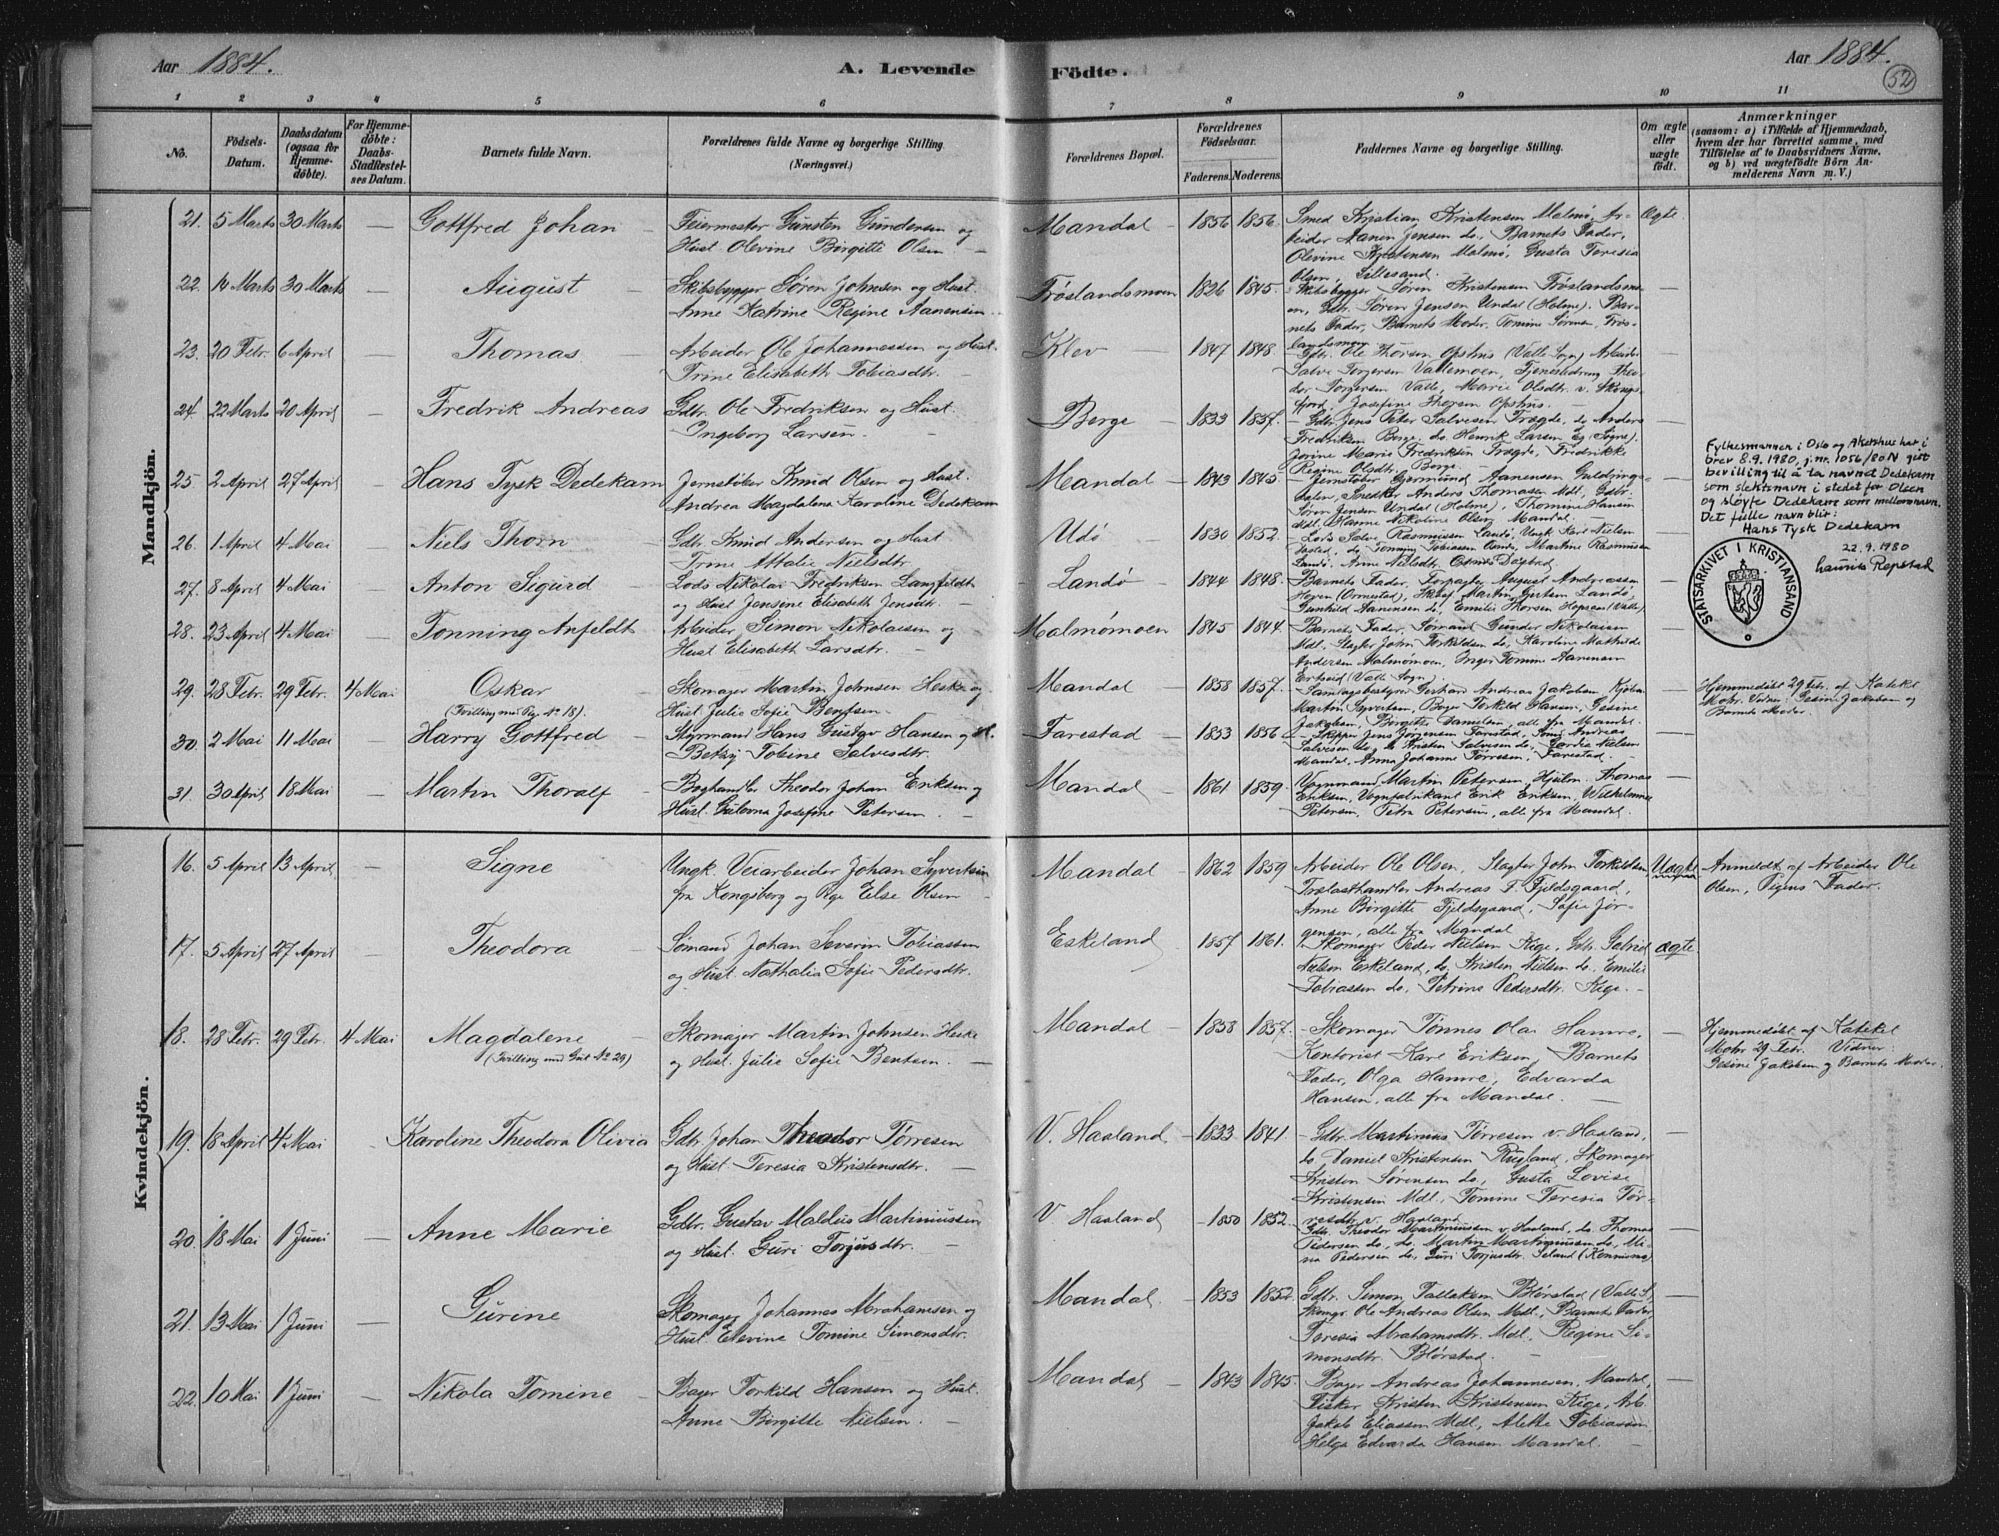 Aar 1884.
A. Levende Födte.
Aar 1884.
52
1 2 3 4 5 6 7 8 9 10 11
No.
Födsels-
Datum.
Daabsdatum
(ogsaa for
Hjemme-
döbte).
For Hjemme-
döbte:
Daabs-
Stadfæstel-
ses Datum.
Barnets fulde Navn.
Forældrenes fulde Navne og borgerlige Stilling.
(Næringsvei.)
Forældrenes Bopæl.
Forældrenes
Födselsaar.
Faderens. Moderens.
Faddernes Navne og borgerlige Stilling.
Om ægte
eller
uægte
födt.
Anmærkninger
(saasom: a) i Tilfælde af Hjemmedaab,
hvem der har forrettet samme, med
Tilföielse af to Daabsvidners Navne,
og b) ved uægtefödte Börn An-
melderens Navn m. V.)
Mandkjön.
21. 5 Marts 30 Marts — Gottfred Johan Feiermester Gunsten Gundersen og
Hust. Olevine Børgitte Olsen. — Mandal 1856 1856.
Smed Kristian Kristensen Malmø, Ar-
beider Aanen Jensen do, Barnets Fader,
Olevine Kristensen Malmø, Gusta Teresia
Olsen, Lillesand.
Ægte.
22. 30 Marts — August Skibsbygger Søren Johnsen og Hust.
Anne Katrine Regine Aanensen. Frøslandsmoen 1826 1845.
Skibsbygger Søren Kristensen Frøslandsmo-
en, Gdbr. Søren Jensen Undal (Holme). Bar-
nets Fader, Barnets Moder, Tomine Sørensen, Frøs-
landsmoen
23. 20 Febr. 6 April — Thomas Arbeider Ole Johannessen og Hust.
Trine Elisabeth Tobiasdtr. Klev — 1847 1848.
Gdbr. Ole Thorsen Opshus (Valle Sogn) Arbeider
Salve Torgersen Vallemoen, Tjenestedreng Theo-
dor Torgersen Valle, Marie Olsdtr. v. Skogs-
fjord, Josefine Thorsen Opshus. —
24. 22 Marts 20 April — Fredrik Andreas Gdbr. Ole Fredriksen og Hust.
Ingeborg Larsen. — Berge — 1833 1837.
Gdbr. Jens Peter Salvesen Trægde, do Anders
Fredriksen Berge, do. Henrik Larsen Eg (Sogne).
Jorine Marie Fredriksen Trægde, Fredrikke
Regine Olsdtr. Berge —
25. 2 April 27 April — Hans Tysk Dedekam Jernstøber Knud Olsen og Hust.
Andrea Magdalena Karoline Dedekam Mandal 1843 1845.
Jernstøber Gjermund Aanensen
Snedker Anders Thomasen Mdl, Gdbr.
Søren Jensen Undal (Holme), Thomine Hansen
Mdl. Hanne Nikoline Olsen Mandal
26. 1 April 4 Mai — Niels Thorn Gdbr. Knud Andersen og Hust
Trine Attalie Nielsdtr. Udø — 1830 1852.
Lods Salve Rasmussen Landø,
Martine Rasmussen
Landø, Anne Nielsdtr.
27. 8 April 4 Mai — Anton Sigurd Lods Nikolai Fredriksen Langfeldt
og Hust. Jensine Elisabeth Jensdtr. — Landø — 1844 1848.
Barnets Fader, August Andreassen
Landø,
Gunhild Aanensen do, Emilie Thorsen
28. 23 April 4 Mai — Tonning Anfeldt Arbeider Simon Nikolaisen og
Hust. Elisabeth Larsdtr. — Malmømoen 1845 1844.
Barnets Fader, Sømand Gunder Nikolaisen
Mdl. Slagter John Torkildsen do, Karoline Mathilde
Andersen Malmømoen, Inger Tomine Aanensen
(Valle Sogn)
29. 28 Febr. 29 Febr. 4 Mai Oskar
(Tvilling med Pige No 18).
Skomager Martin Johnsen Heske og
Hust. Julie Sofie Bentsen. — Mandal — 1858 1857.
Gerhard Andreas Jakobsen
Martin Syvertsen, Bager Torkild Hansen, Gesine
Jakobsen, Børgitte Danielsen, alle fra Mandal.
Hjemmedøbt 29 Febr. af Kateket
Mohr. Vidner: Gesine Jakobsen og
Barnets Moder
30. 2 Mai 11 Mai — Harry Gottfred Styrmand Hans Gustav Hansen og H.
Betzy Tobine Salvesdtr. — Farestad — 1853 1856
Skipper Jens Jørgensen Farestad, Andreas
Salvesen do, Nielsen
Mandal, Anna Johanne Tørresen, Farestad. —
31. 30 April 18 Mai — Martin Thoralf Boghandler Theodor Johan Eriksen og
Hust. Josefine Petersen. — Mandal — 1861 1859.
Vognmand Martin Petersen, Thomas
Eriksen, Vognfabrikant Erik Eriksen, Wilhelmine
Petersen, Petra Petersen, alle fra Mandal.
Fylkesmannen i Oslo og Akershus har i
brev 8.9.1980, j.nr. 1056/80 N gitt
bevilling til å ta navnet Dedekam
som slektsnavn i stedet for Olsen
og sløyfe Dedekam som mellomnavn.
Det fulle navn blir:
Hans Tysk Dedekam
22.9.1980
Laurits Repstad
STATSARKIVET I KRISTIANSAND
Kvindekjön.
16. 5 April 13 April — Signe Ungk. Veiarbeider Johan Syvertsen
fra Kongsberg og Pige Else Olsen — Mandal — 1862 1859
Arbeider Ole Olsen, Slagter John Torkildsen,
Trelasthandler Andreas F. Fjeldsgaard,
Anne Børgitte Fjeldsgaard, Sofie Jør-
gensen, alle fra Mandal
Uægte
Anmeldt af Arbeider Ole
Olsen, Pigens Fader.
17. 5 April 27 April — Theodora Sømand Johan Severin Tobiassen
og Hust. Nathalia Sofie Pedersdtr. Eskeland — 1857 1861.
Skomager Peder Nielsen Kige, Gdbr.
Nielsen Eskeland, do. Kristen Nielsen do. Emilie
Tobiassen do. Petrine Pedersdtr. Kige. —
ægte
18. 28 Febr. 29 Febr. 4 Mai Magdalene
(Tvilling med Gut No 29)
Skomager Martin Johnsen Heske
og Hust. Julie Sofie Bentsen. — Mandal — 1858 1857.
Skomager Tønnes Olai Hamre,
Kontorist Karl Eriksen, Barnets
Fader, Olga Hamre, Edvarda
Hansen, alle fra Mandal. —
Hjemmedøbt af Kateket
Mohr 29 Febr. Vidner:
Gesine Jakobsen og Barnets Moder.
19. 18 April 4 Mai — Karoline Theodora Olivia Gdbr. Johan Theodor Tørresen
og Hust. Teresia Kristensdtr. — V. Haaland — 1833 1841
Gdbr. Martinius Tørresen v. Haaland,
do. Daniel Kristensen Rugland, Skomager
Kristen Sørensen do, Gusta Lovise
Kristensen Mdl., Tomine Teresia Tør-
resdtr. v. Haaland
20. 18 Mai 1 Juni — Anne Marie Gdbr. Gustav Maldus Martiniussen
og Hust. Guri Torjusdtr. — V. Haaland — 1850 1852.
Gdbr. Theodor Martiniussen v. Haaland, do. Thomas
Pedersen do, do. Martin Martiniussen do, Mi-
na Pedersen do, Guri Torjusdtr.
21. 13 Mai 1 Juni — Gurine Skomager Johannes Abrahamsen og
Hust. Elevine Tomine Simonsdtr. Mandal. — 1853 1852.
Gdbr. Simon Tallaksen Blørstad (Valle S.)
Skomgr. Ole Andreas Olsen Mdl., Barnets Fader,
Teresia Abrahamsdtr. Mdl. Regine Si-
monsdtr. Blørstad. —
22. 10 Mai 1 Juni — Nikola Tomine Bager Torkild Hansen og Hust.
Anne Børgitte Nielsen. — Mandal — 1843 1845.
Bager Andreas Johannesen, Mandal,
Fisker Kristen Kristensen Kige, Arb.
Jakob Eliassen Mdl., Alette Tobiassen
Helga Edvarda Hansen Mandal. —